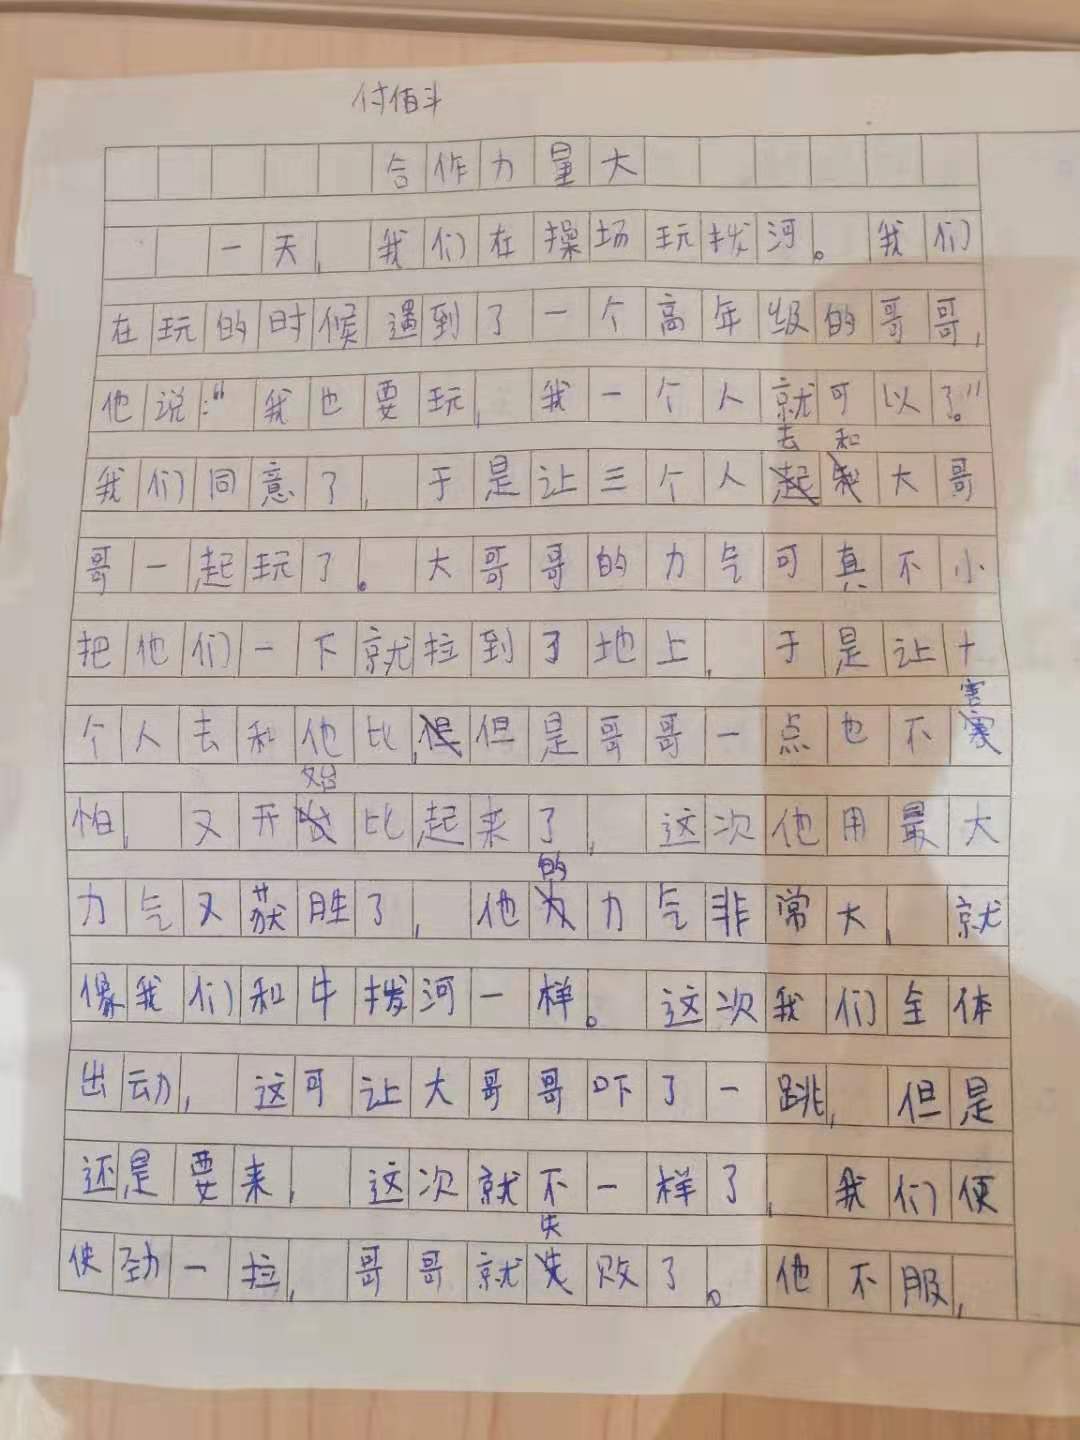 付佰斗
合作力量大
一天,我们在操场玩拨河。我们
在玩的时候遇到了一个高年级的哥哥,
他说:“我也要玩,我一个人就可以了。”
我们同意了,于是让三个人去和大哥
哥一起玩了。大哥哥的力气可真不小
把他们一下就拉到了地上,于是让十
个人去和他比,但是哥哥一点也不害
怕,又开始比起来了,这次他用最大
力气又获胜了,他的力气非常大,就
像我们和牛拨河一样。这次我们全体
出动,这可让大哥哥吓了一跳,但是
还是要来,这次就不一样了,我们使
使劲一拉,哥哥就失败了。他不服,